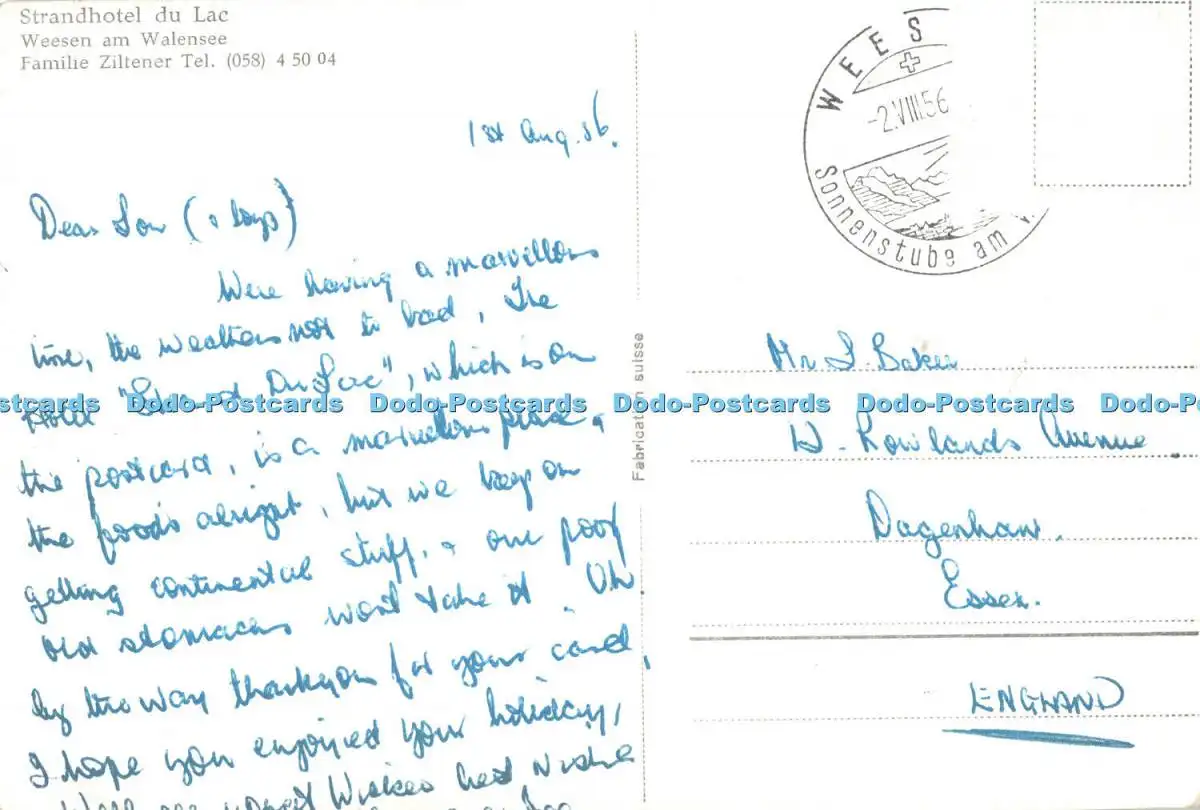 Strandhotel du Lac
Weesen am Walensee
Familie Ziltener Tel. (058) 4 50 04
WEES
-2.VIII.56
Sonnenstube am W
1st Aug. 56.
Dear (& boys)
Were having a marvellous
time, the weathers not to bad, The
Hotel "Du Lac", which is on
the postcard, is a marvellous place,
the foods alright, but we keep on
getting continental stuff, & our poor
old stomacks wont take it. Oh
by the way thankyou for your card,
I hope you enjoyed your holiday,
best wishes
Fabrication suisse
Mr S. Baker
Rowlands Avenue
Dagenham.
Essex.
ENGLAND
stcards Dodo-Postcards Dodo-Postcards Dodo-Postcards Dodo-Postcards Dodo-Po